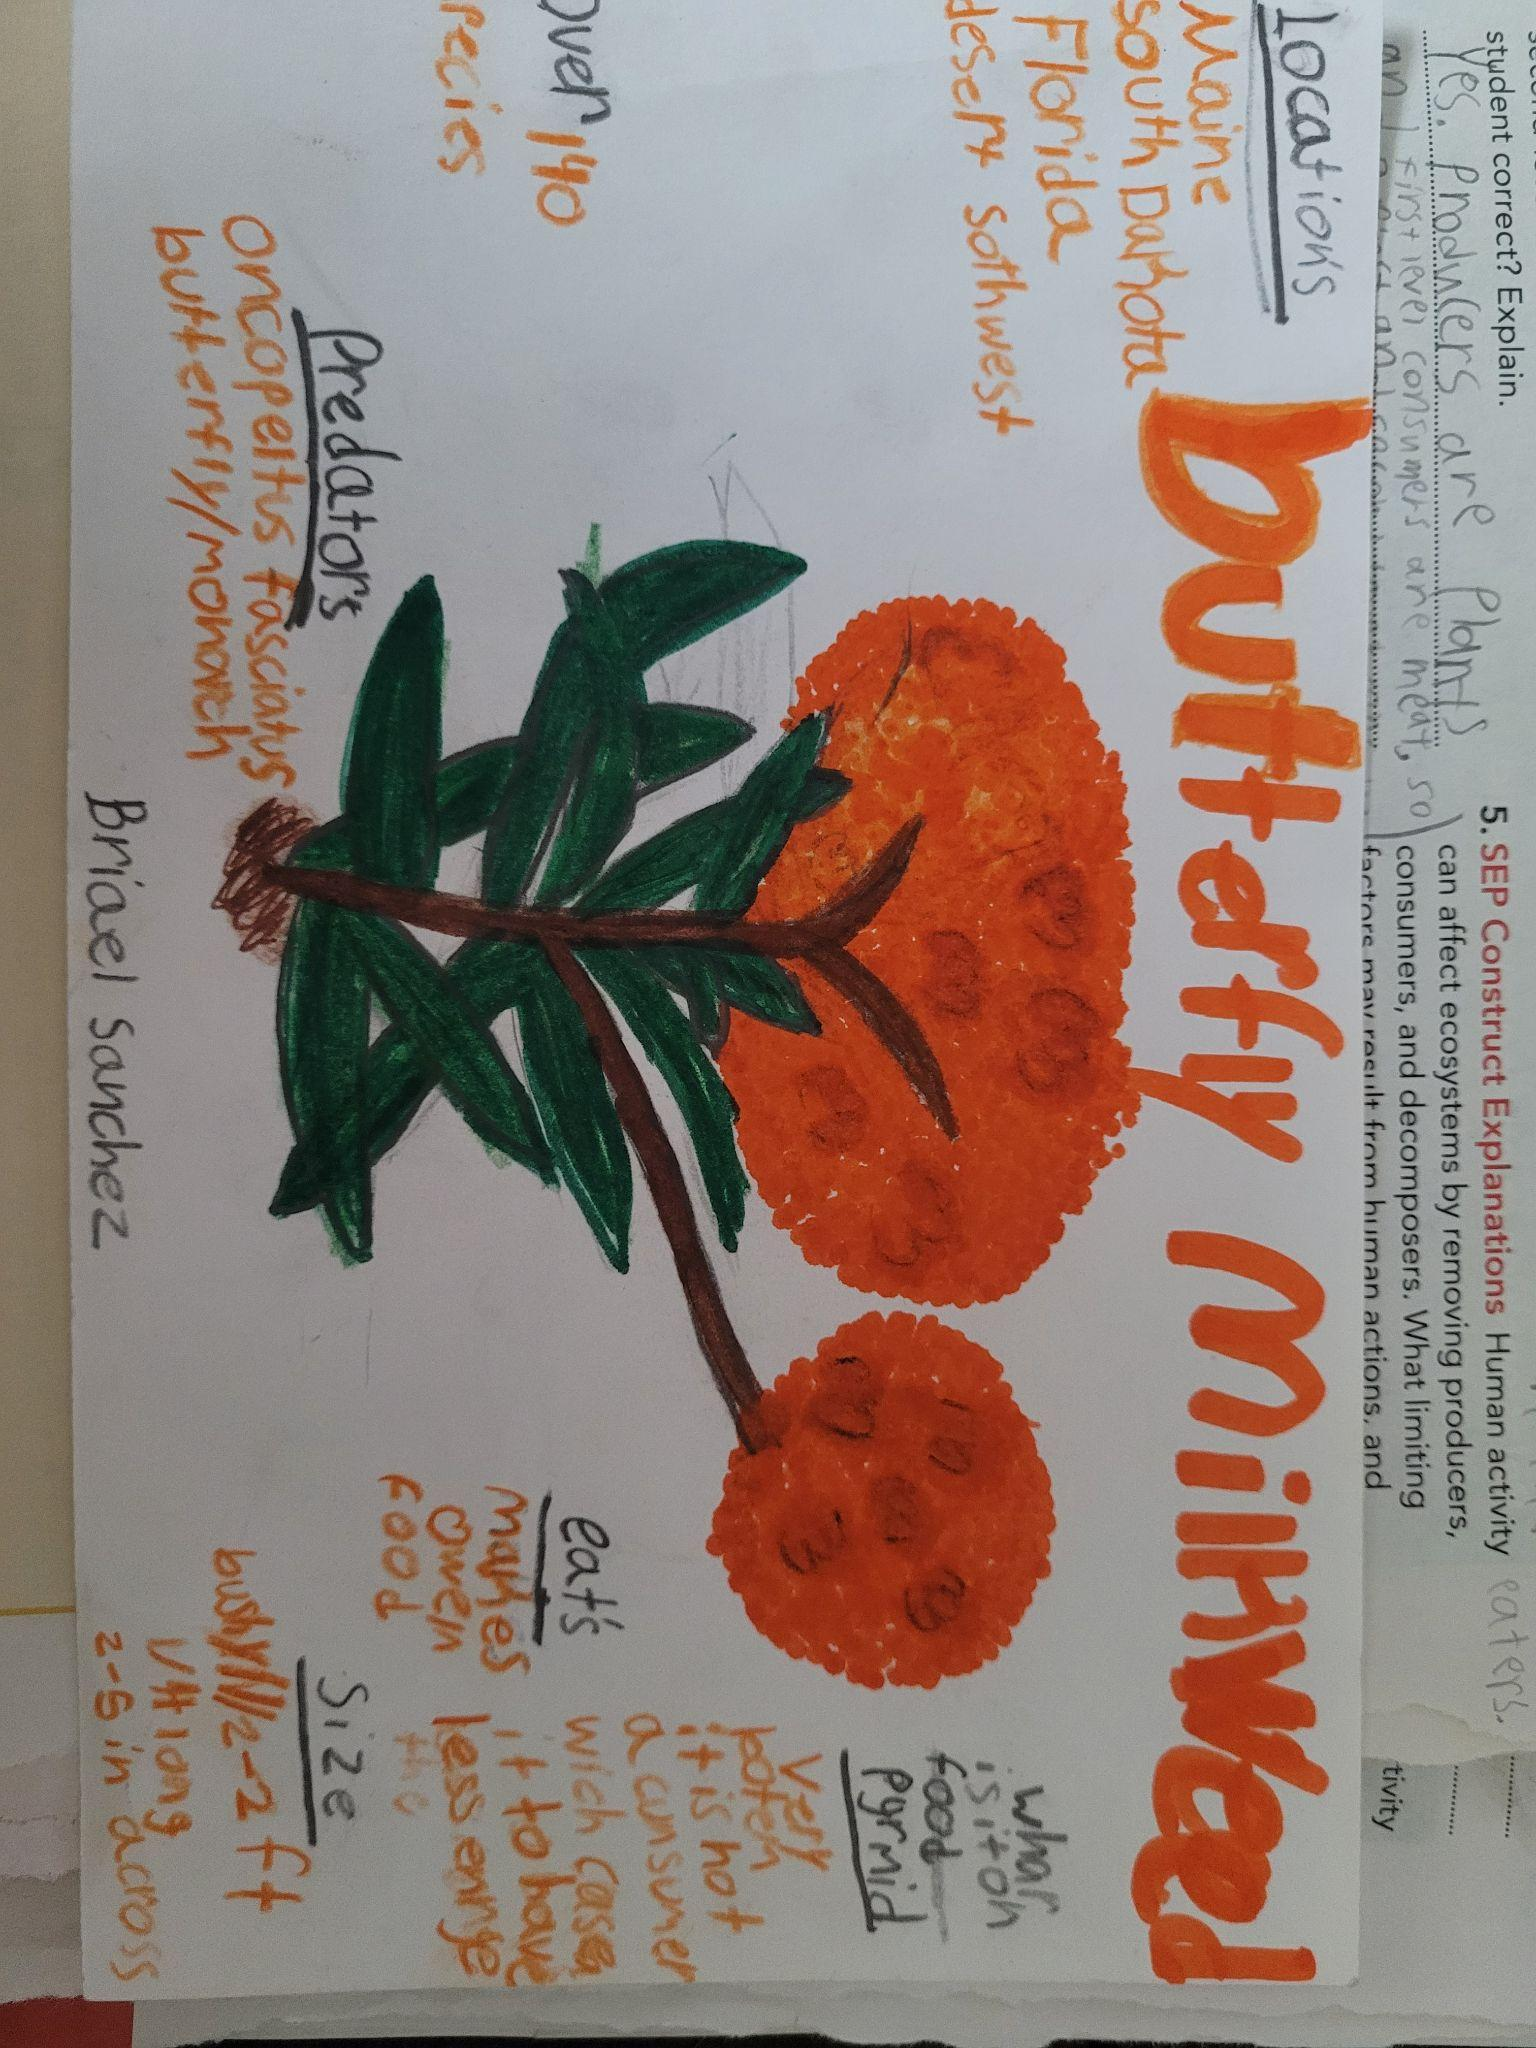 student correct? Explain.
Yes. Producers are plants
an first level consumers are meat, so
eaters.
5. SEP Construct Explanations Human activity
can affect ecosystems by removing producers,
consumers, and decomposers. What limiting
factors may result from human actions, and
tivity
butterfly Milkweed
location's
Maine
south Dakota
Florida
desert sothwest
over 140
pecies
Predators
oncopeltus fasciatus
butterfly/monarch
what
is it on
food
pyrmid
very
it is not
a cunsumer
wich cases
it to have
less
the
eat's
makes
food
Size
2-2 ft
long
2-5 in across
Briael Sanchez